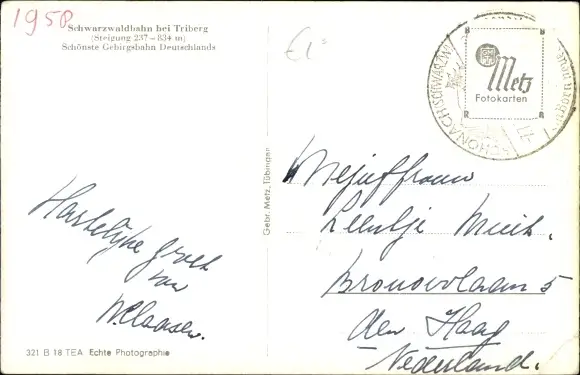 1958
Schwarzwaldbahn bei Triberg
(Steigung 237–834 m)
Schönste Gebirgsbahn Deutschlands
€1=
SCHONACH/SCHWARZW
Metz
Fotokarten
Gebr. Metz, Tübingen
Mejuffrouw
Leentje
den Haag
Nederland.
Hartelijke groet
van
W. Claasen.
321 B 18 TEA Echte Photographie